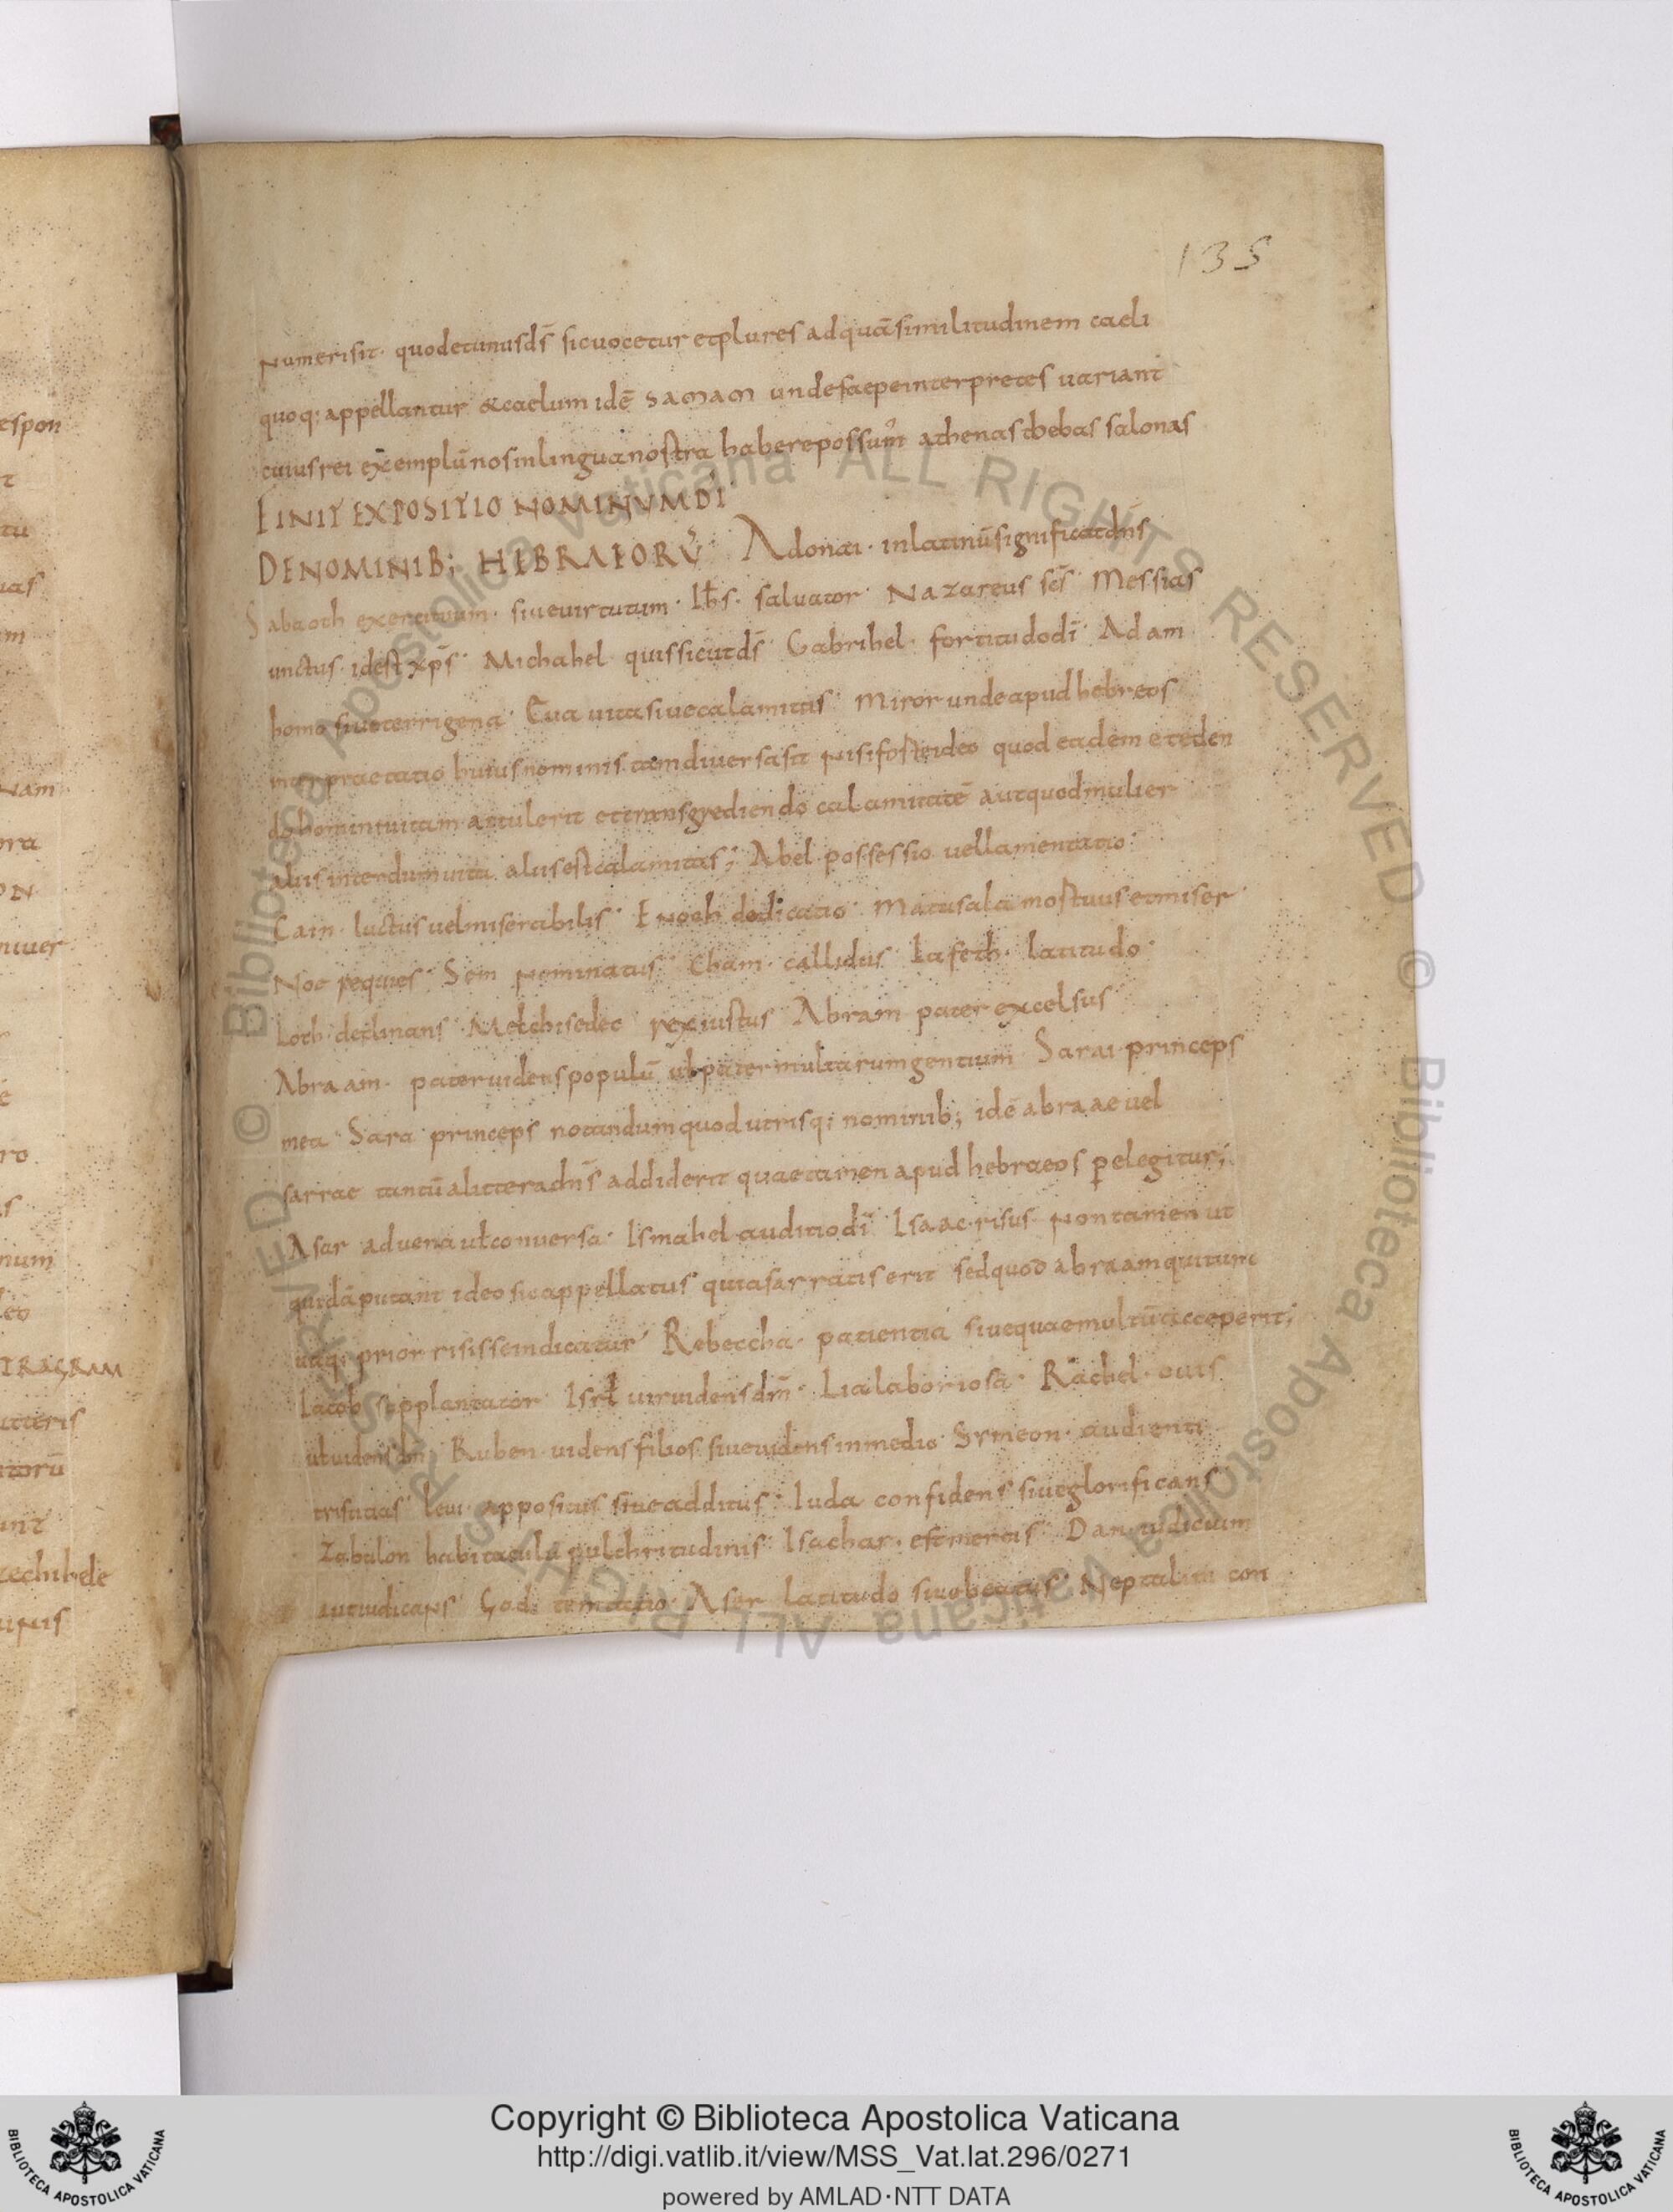 135
numeri sit · quod et unus ds̄ sic vocetur et plures ad quā similitudinem caeli
quoq; appellantur & caelum idē samam unde saepe interpretes variant
cuius rei exemplū nos in lingua nostra habere possum᾽ athenas thebas salonas
FINIT EXPOSITIO NOMINVM DI
DE NOMINIB; HEBRAEORŪ Adonai · in latinū significat dn̄s
Sabaoth exercituum · sive virtutum · Ih̄s · salvator · Nazareus sc̄s · Messias
unctus · id est xp̄s · Michahel · quis sicut ds̄ · Gabrihel · fortitudo dī · Adam
homo sive terrigena · Eva vita sive calamitas · Miror unde apud hebreos
huius nominis tam diversa sit nisi forte ideo quod eadem et eden
do homini vitam attulerit et transgrediendo calamitatē aut quod mulier
aliis interdum vita aliis est calamitas; Abel possessio vel lamentatio ·
Cain · luctus vel miserabilis · Enoch dedicatio · Matusala mortuus et miser ·
Noe requies · Sem nominatus · Cham · callidus Iafeth · latitudo ·
Loth · declinans · Melchisedec rex iustus Abram pater excelsus
Abraam · pater videns populū vł pater multarum gentium Sarai · princeps
mea · Sara princeps notandum quod utrisq; nominib; idē abraae vel
sarrae tantū a littera dn̄s addiderit quae tamen apud hebraeos p̱ e legitur;
Asar advena vł conversa · Ismahel auditio dī Isaac · risus non tamen ut
quidā putant ideo sic appellatus quia sarra riserit sed quod abraam qui tunc
utiq; prior risisse indicatur Rebeccha · patientia sive quae multū acceperit;
Iacob supplantator · Isrł vir videns dm̄ · Lia laboriosa · Rachel · ovis
vł videns dm̄ · Ruben · videns filios sive videns in medio · Symeon · audienti
tristitias Levi · appositus sive additus · Iuda confidens sive glorificans
Zabulon habitaculū pulchritudinis · Isachar · est merces · Dan · iudicium
aut iudicans Gad · temtatio · Aser latitudo sive beatus · Neptalim con
Copyright © Biblioteca Apostolica Vaticana
http://digi.vatlib.it/view/MSS_Vat.lat.296/0271
powered by AMLAD·NTT DATA